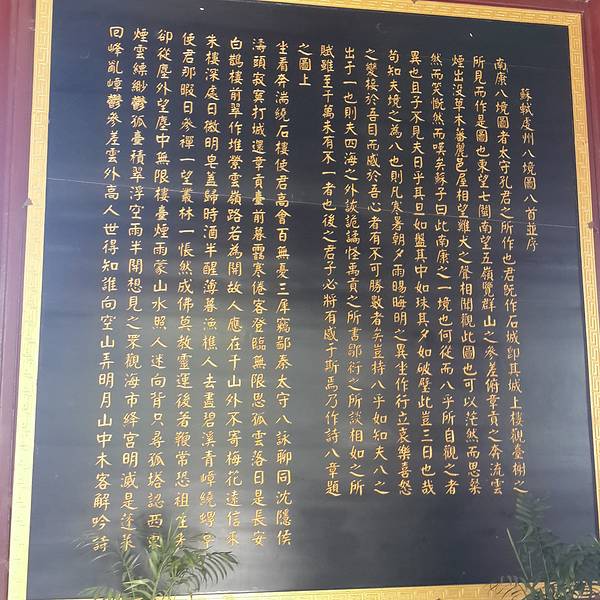 蘇軾虔州八境圖八首並序
南康八境圖者太守孔君之所作也君旣作石城卽其城上樓觀臺榭之
所見而作是圖也東望七閩南望五嶺覽群山之參差俯章貢之奔流雲
煙出沒草木蕃麗邑屋相望雞犬之聲相聞觀此圖也可以茫然而思粲
然而笑慨然而嘆矣蘇子曰此南康之一境也何從而八乎所自觀之者
異也且子不見夫日乎其旦如盤其中如珠其夕如破璧此豈三日也哉
苟知夫境之為八也則凡寒暑朝夕雨暘晦明之異坐作行立哀樂喜怒
之變接於吾目而感於吾心者有不可勝數者矣豈特八乎如知夫八之
出于一也則夫四海之外詼詭譎怪禹貢之所書鄒衍之所談相如之所
賦雖至千萬未有不一者也後之君子必將有感于斯焉乃作詩八章題
之圖上
坐看奔湍繞石樓使君高會百無憂三犀竊鄙秦太守八詠聊同沈隱侯
濤頭寂寞打城還章貢臺前暮靄寒倦客登臨無限思孤雲落日是長安
白鵲樓前翠作堆縈雲嶺路若為開故人應在千山外不寄梅花遠信來
朱樓深處日微明皁蓋歸時酒半醒薄暮漁樵人去盡碧溪青嶂繞螺亭
使君那暇日參禪一望叢林一悵然成佛莫教靈運後著鞭常恐祖生先
卻從塵外望塵中無限樓臺煙雨蒙山水照人迷向背只尋孤塔認西東
煙雲縹緲鬱孤臺積翠浮空雨半開想見之罘觀海市絳宮明滅是蓬萊
回峰亂嶂鬱參差雲外高人世得知誰向空山弄明月山中木客解吟詩